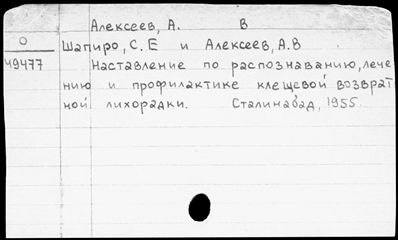 Алексеев, А. В
О
49477
Шапиро, С. Е и Алексеев, А.В
Наставление по распознаванию, лече
нию и профилактике клещевой возврат
ной лихорадки. Сталинабад, 1955.